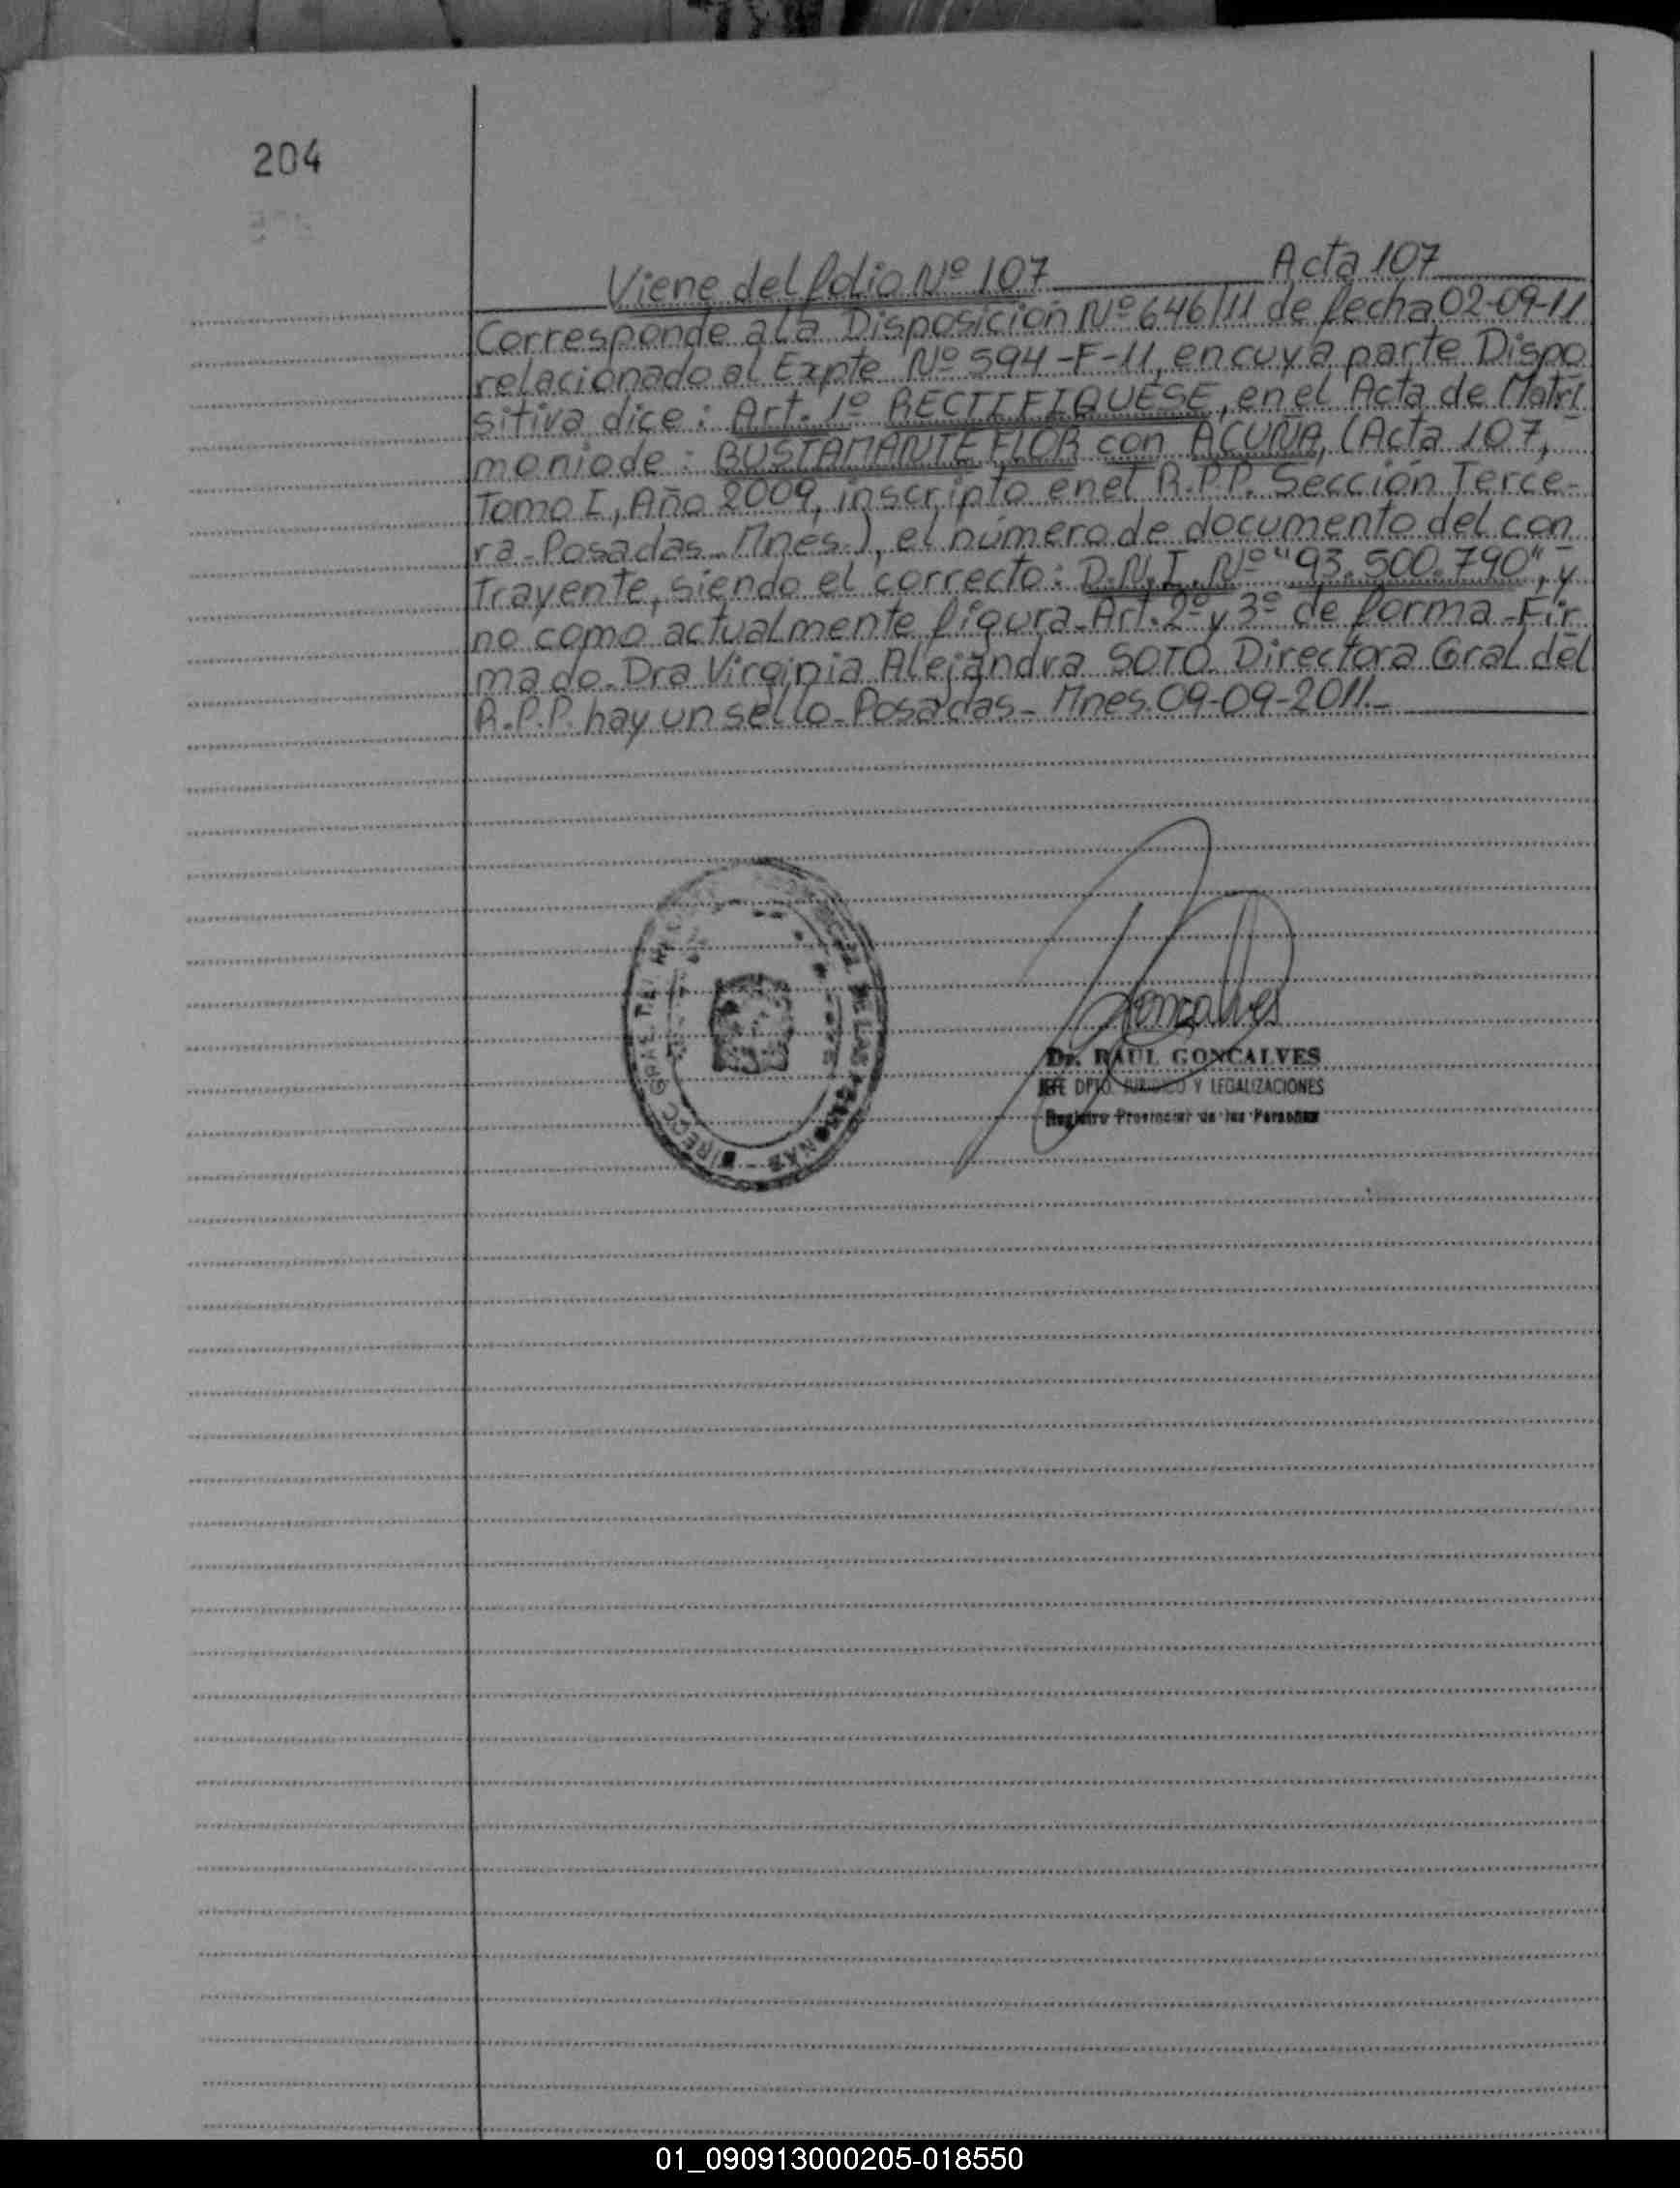 204
Viene del folio Nº 107 Acta 107
Corresponde a la Disposición Nº 646/11 de fecha 02-09-11
relacionado al Expte Nº 594-F-11, en cuya parte Dispo
sitiva dice: Art. 1º RECTIFIQUESE, en el Acta de Matri
monio de: BUSTAMANTE FLOR con ACUÑA, (Acta 107,
Tomo I, Año 2009, inscripto en el R.P.P. Sección Terce-
ra-Posadas-Mnes.), el número de documento del con
trayente, siendo el correcto: D.N.I. Nº "93.500.790", y
no como actualmente figura. Art. 2º y 3º de forma-Fir
mado. Dra Virginia Alejandra SOTO. Directora Gral del
R.P.P. hay un sello-Posadas-Mnes. 09-09-2011.-
Goncalves
Dr. RAUL GONCALVES
JEFE DPTO. JURIDICO Y LEGALIZACIONES
Registro Provincial de las Personas
DE LAS PERSONAS
01_090913000205-018550